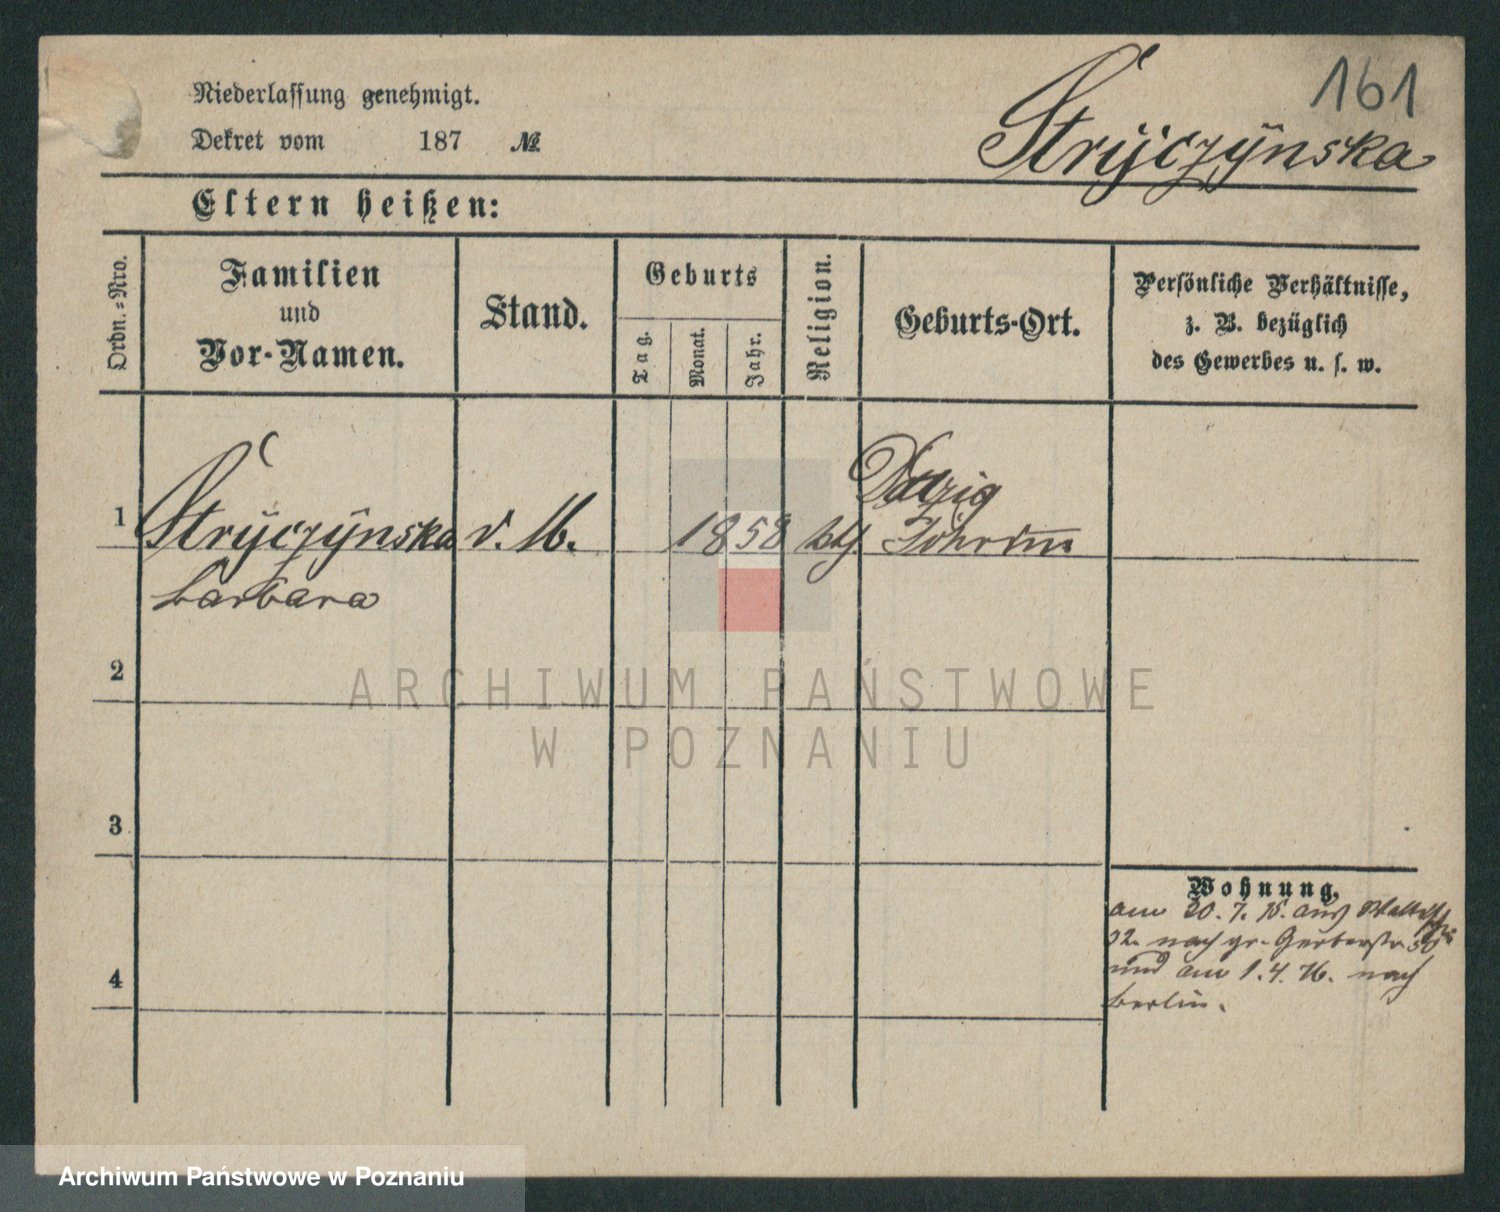 161
Niederlassung genehmigt.
Dekret vom 187 №
Stryczynska
Eltern heißen:
Ordn.=Nro.
Familien
und
Vor-Namen.
Stand.
Geburts
Tag.
Monat.
Jahr.
Religion.
Geburts-Ort.
Persönliche Verhältnisse,
z. B. bezüglich
des Gewerbes u. s. w.
1 Stryczynska d. M. 1858 kth
Barbara
2
ARCHIWUM PAŃSTWOWE
W POZNANIU
3
4
Wohnung,
am 20. 7. 15. aus
nach gr. Gerberstr.
und am 1. 4. 76. nach
Berlin.
Archiwum Państwowe w Poznaniu